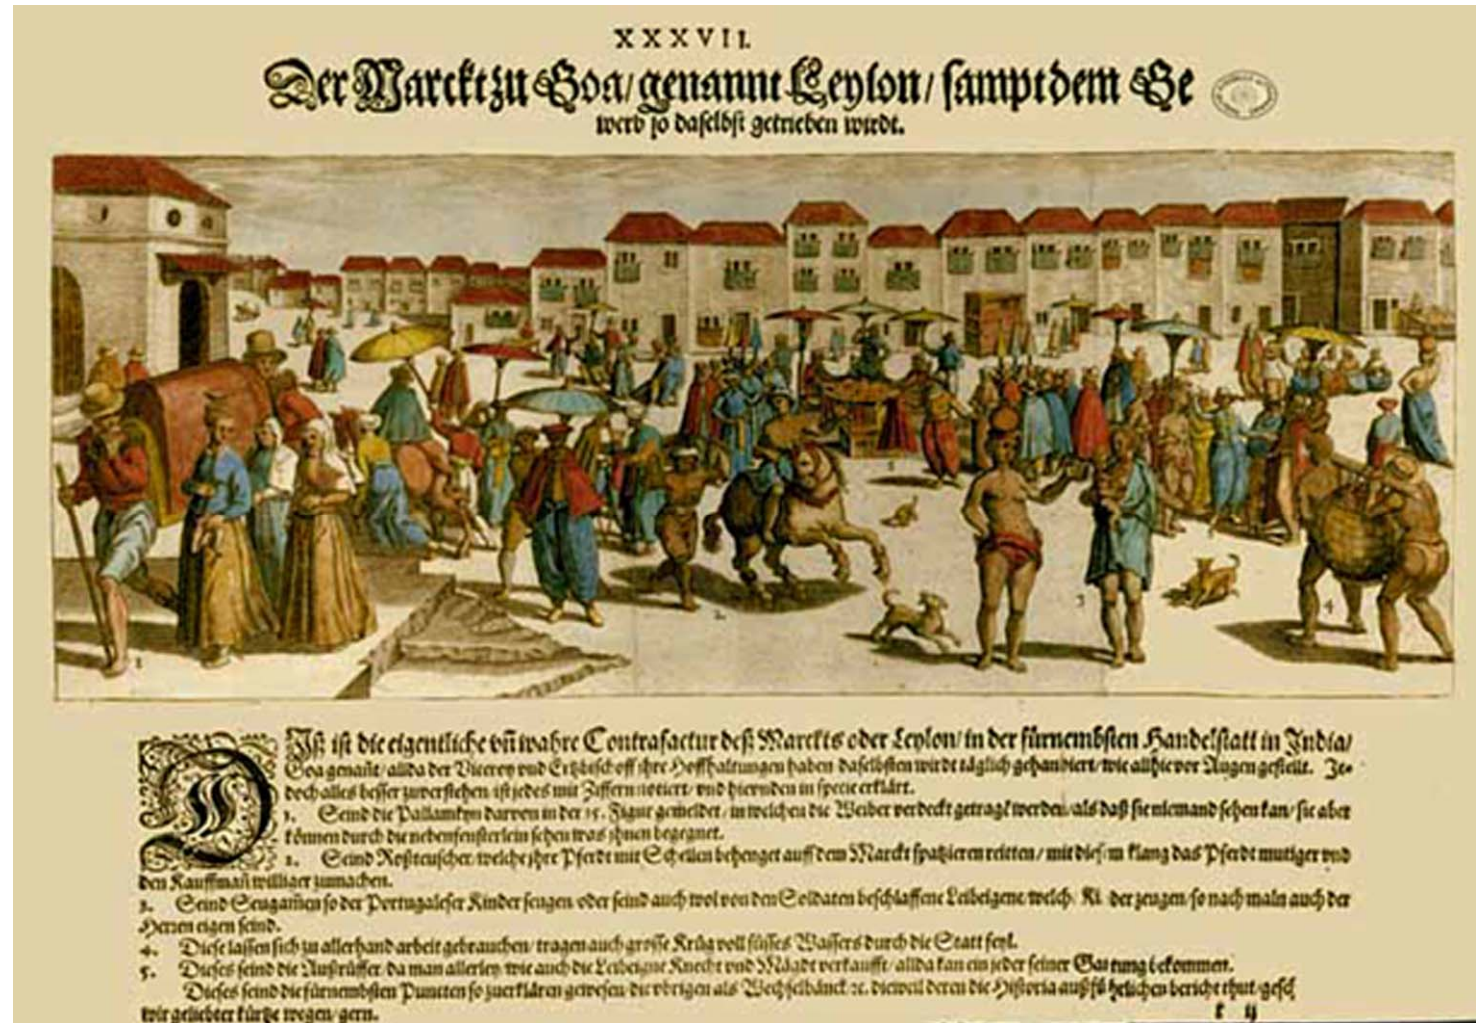 XXXVII.
Der Marckt zu Goa/ genannt Leylon/ sampt dem Ge
werb so daselbst getrieben wirdt.
1
2
3
4
5
DIß ist die eigentliche vn̄ wahre Contrafactur deß Marckts oder Leylon/ in der fürnembsten Handelstatt in India/
Goa genañt/ allda der Viceroy vnd Ertzbischoff ihre Hoffhaltungen haben daselbsten wirdt täglich gehandiert/ wie allhie vor Augen gestellt. Je-
doch alles besser zuverstehen ist jedes mit Ziffern notiert/ vnd hierunden in specie erklärt.
1. Seind die Pallamkyn darvon in der 15. Figur gemeldet/ in welchen die Weiber verdeckt getragē werden/ als daß sie niemand sehen kan/ sie aber
können durch die nebenfensterlein sehen was ihnen begegnet.
2. Seind Roßteuscher/ welche ihre Pferdt mit Schellen behenget auff dem Marckt spatzieren reitten/ mit diesem klang das Pferdt mutiger vnd
den Kauffmañ williger zumachen.
3. Seind Seugam̄en so der Portugaleser Kinder seugen/ oder seind auch wol von den Soldaten beschlaffene Leibeigene/ welch Ki der zeugen/ so nach maln auch der
Herren eigen seind.
4. Diese lassen sich zu allerhand arbeit gebrauchen/ tragen auch grosse Krüg voll süsses Wassers durch die Statt feyl.
5. Dieses seind die Außrüffer/ da man allerley/ wie auch die Leibeigne Knecht vnd Mägdt verkaufft/ allda kan ein jeder seiner Gattung bekommen.
Dieses seind die fürnembsten Puncten so zuerklären gewesen/ die vbrigen als Wechselbänck ꝛc. dieweil deren die Historia außführlichen bericht thut/ gesch
wir geliebter kürtze wegen/ gern.
k ij